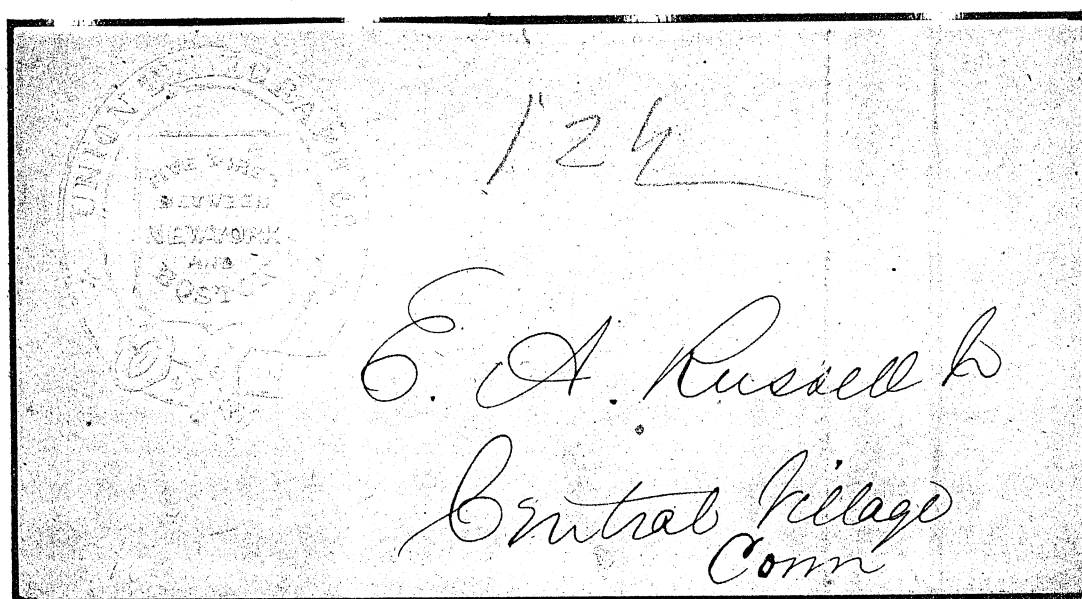 UNION
FIVE TIMES
BETWEEN
NEW YORK
AND
BOSTON
124
E. A. Russell
Central Village
Conn